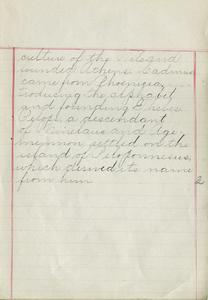 culture of the Nile and
founded Athens. Cadmus
came from Phoenicia,
troducing the alphabet
and founding Thebes
Pelops, a descendant
of Menelaus and Aga-
memnon settled on the
island of Peloponnesus,
which derived its name
from him
2